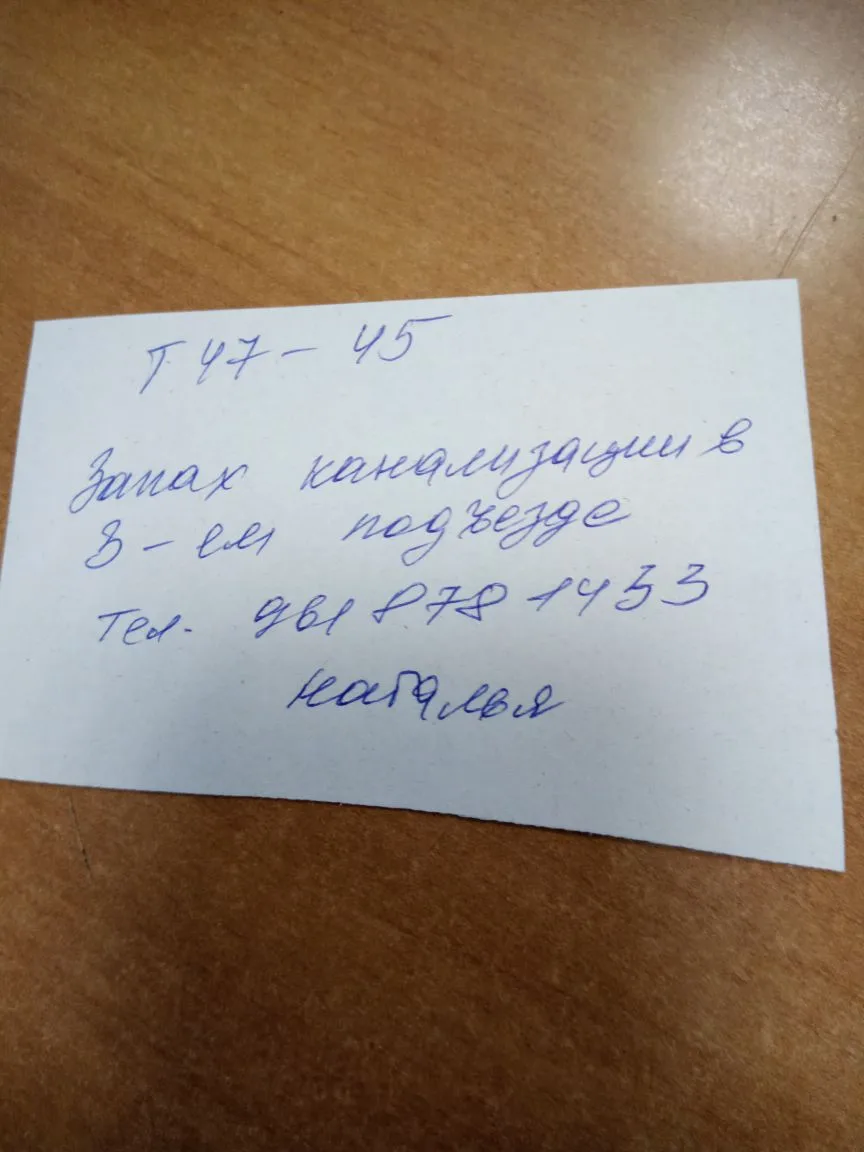 Т 47 - 45
Запах канализации в
3-ем подъезде
Тел. 961 878 1453
Наталья